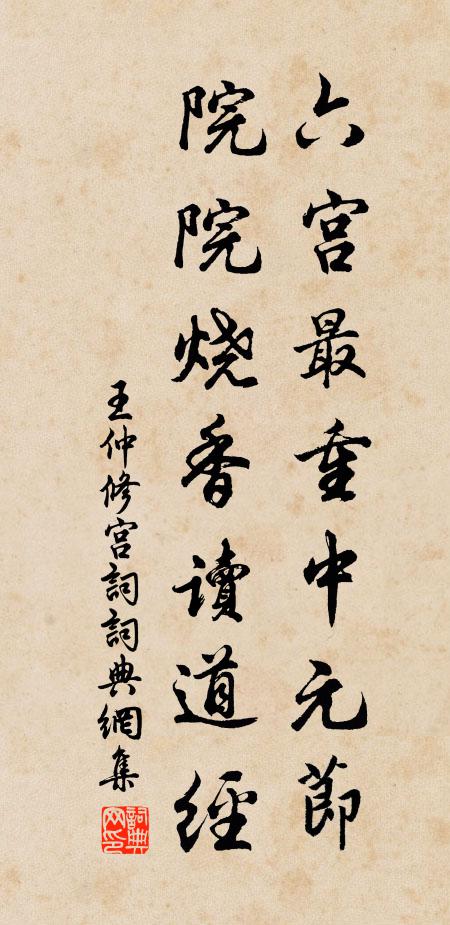 六宫最重中元節
院院烧香讀道經
王仲修宫詞詞典網集
詞典網印